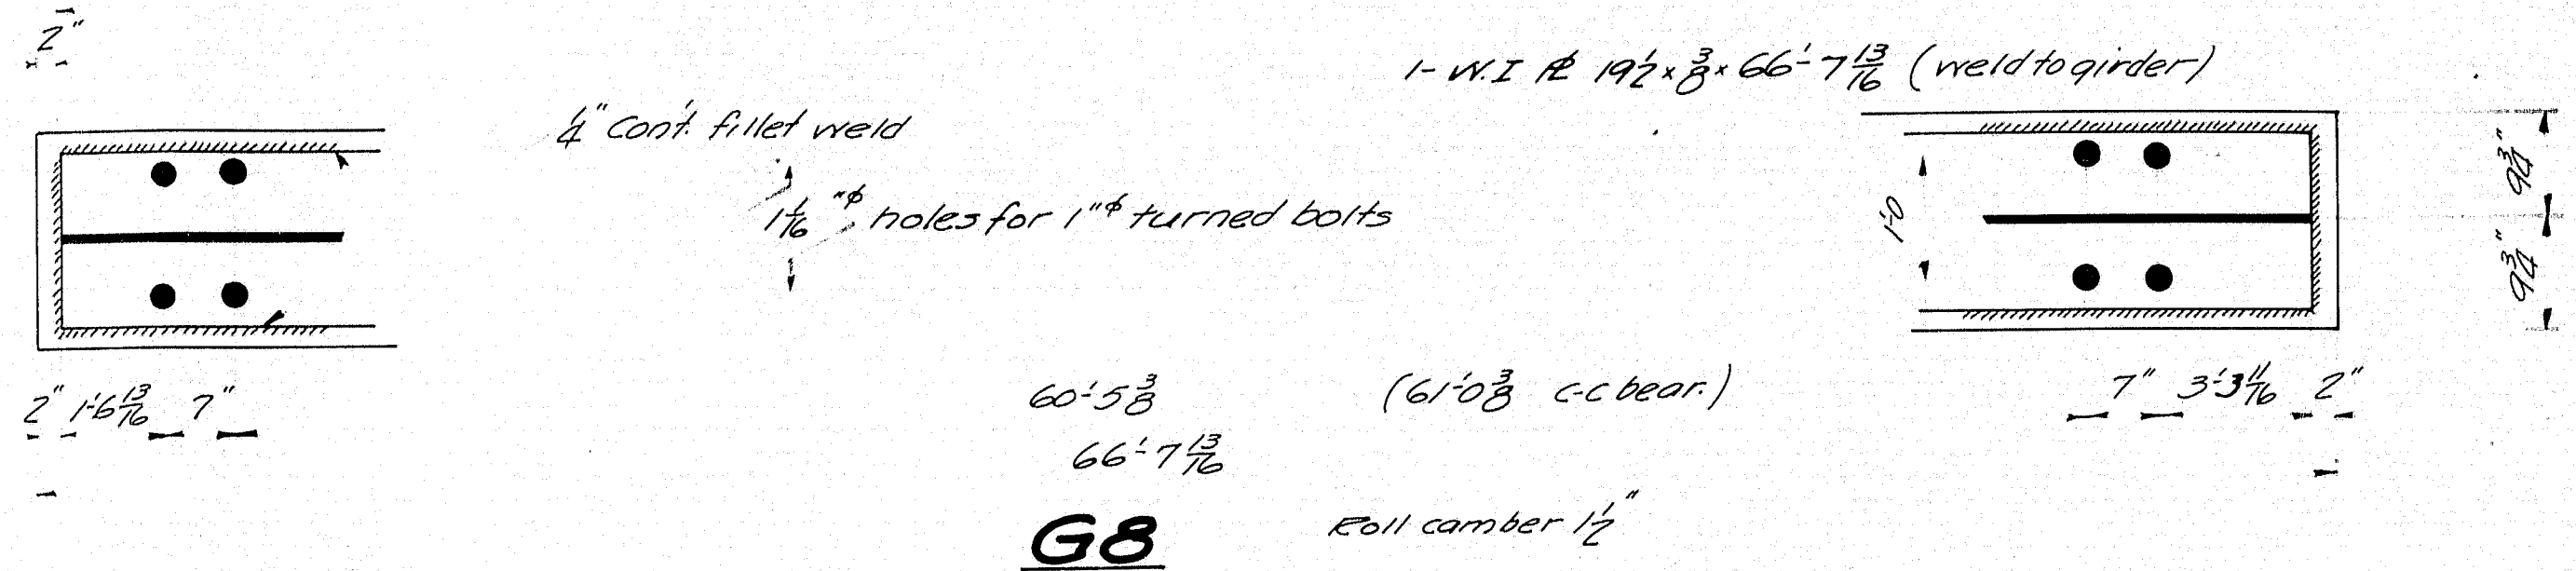 2"
1- W.I ℄ 19½ x ⅜ x 66'-7 13/16 (weld to girder)
¼" Cont. fillet weld
1 1/16"ø holes for 1"ø turned bolts
1'-0
9¾"
9¾"
2" 1'-6 13/16 7"
60'-5⅜ (61'-0⅜ c-c bear.)
7" 3'-3 11/16 2"
66'-7 13/16
G8
Roll camber 1½"